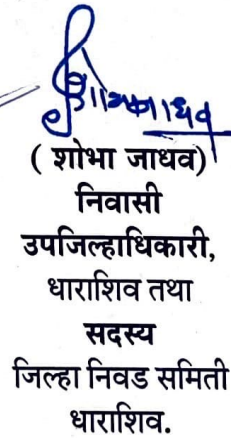 ( शोभा जाधव)
निवासी
उपजिल्हाधिकारी,
धाराशिव तथा
सदस्य
जिल्हा निवड समिती
धाराशिव.